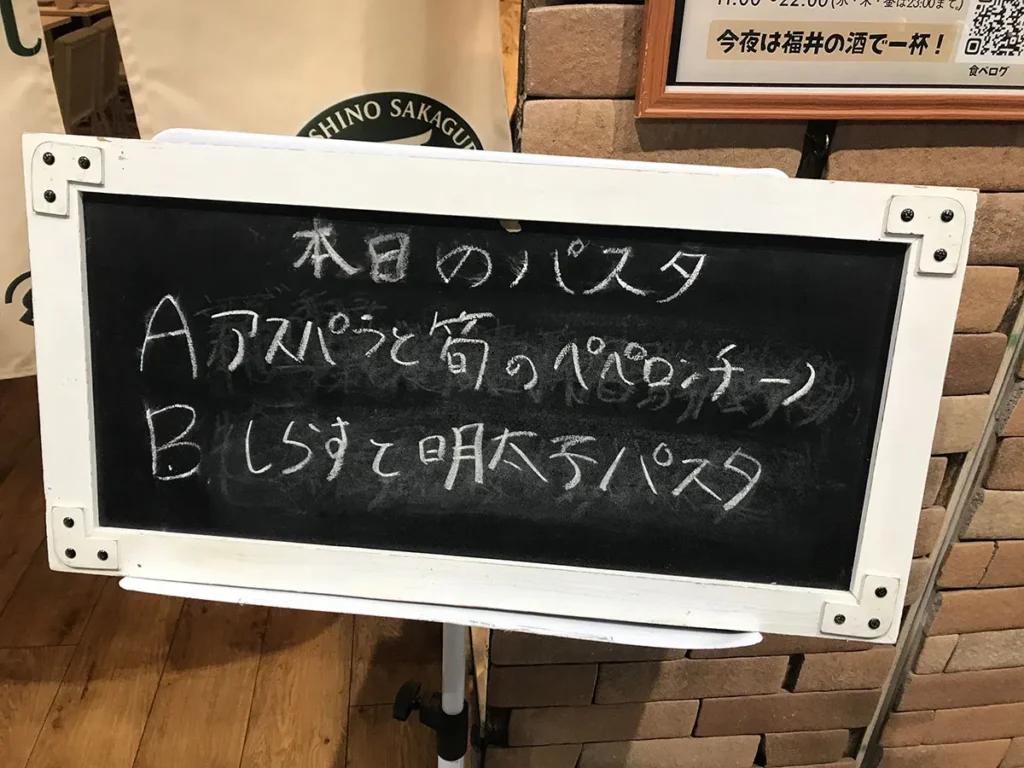 11:00~22:00(水・木・金は23:00まで。)
今夜は福井の酒で一杯!
食べログ
SHINO SAKAGU
本日のパスタ
A アスパラと筍のペペロンチーノ
B しらすと明太子パスタ